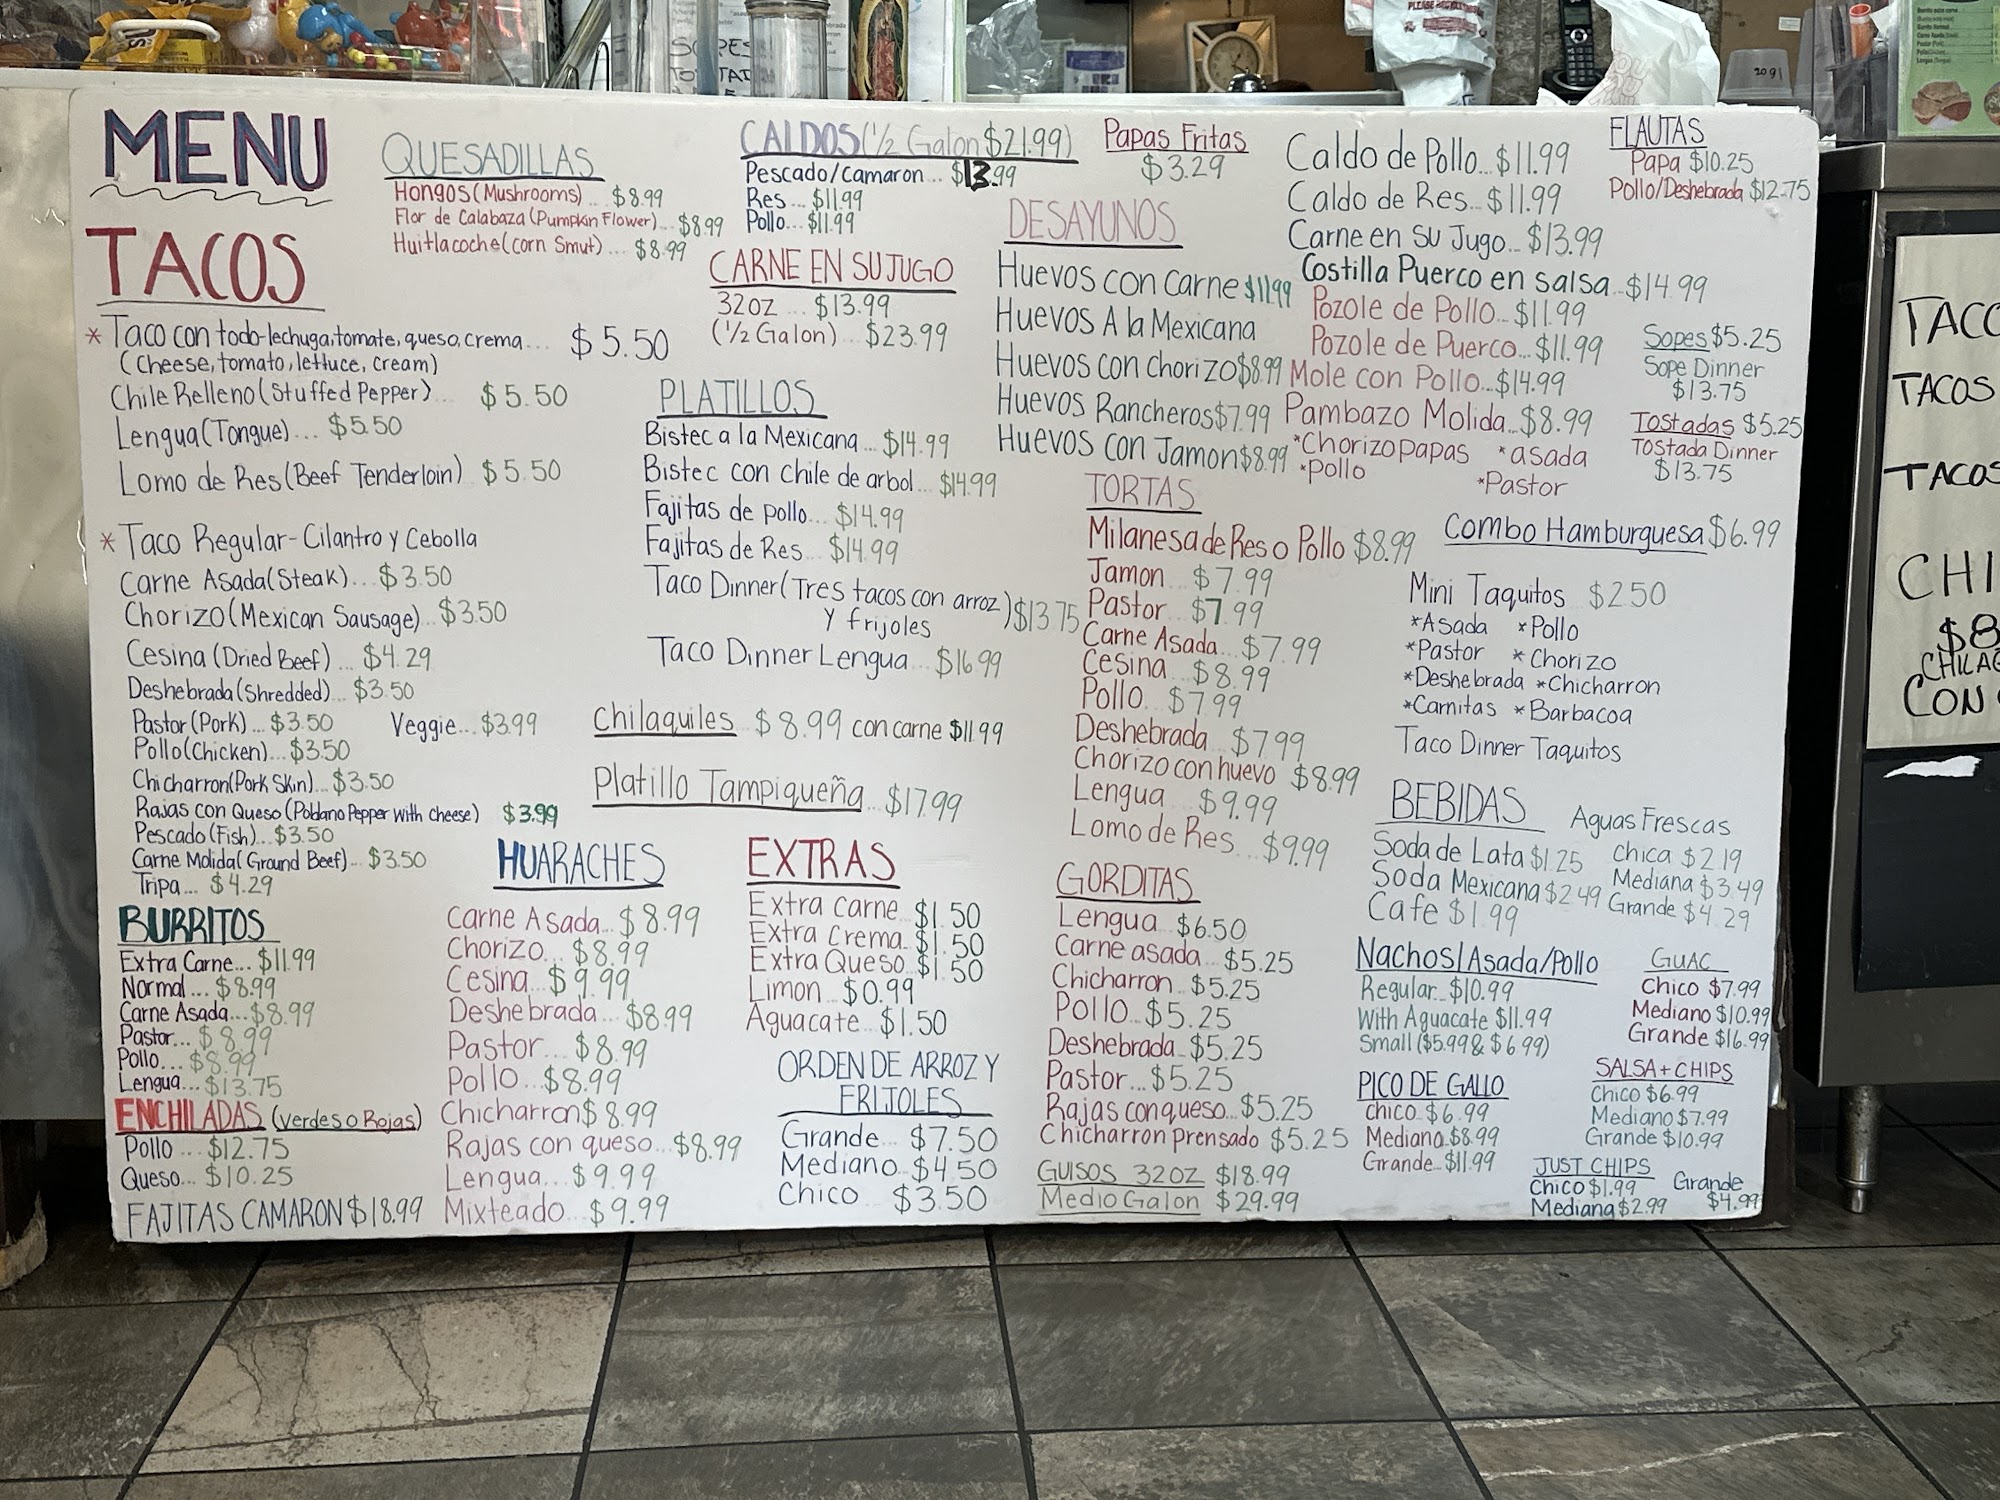 MENU
TACOS
* Taco con todo-lechuga,tomate, queso, crema... $5.50
(Cheese, tomato, lettuce, cream)
Chile Relleno (Stuffed Pepper)... $5.50
Lengua (Tongue)... $5.50
Lomo de Res (Beef Tenderloin) $5.50
* Taco Regular-Cilantro y Cebolla
Carne Asada (Steak)... $3.50
Chorizo (Mexican Sausage)... $3.50
Cesina (Dried Beef)... $4.29
Deshebrada (Shredded)... $3.50
Pastor (Pork)... $3.50 Veggie... $3.99
Pollo (Chicken)... $3.50
Chicharron (Pork Skin)... $3.50
Rajas con Queso (Poblano Pepper with cheese) $3.99
Pescado (Fish)... $3.50
Carne Molida (Ground Beef)... $3.50
Tripa... $4.29
BURRITOS
Extra Carne... $11.99
Normal... $8.99
Carne Asada... $8.99
Pastor... $8.99
Pollo... $8.99
Lengua... $13.75
ENCHILADAS (verdes o Rojas)
Pollo... $12.75
Queso... $10.25
FAJITAS CAMARON $18.99
QUESADILLAS
Hongos (Mushrooms)... $8.99
Flor de Calabaza (Pumpkin Flower)... $8.99
Huitlacoche (corn Smut)... $8.99
CALDOS (1/2 Galon $21.99)
Pescado/Camaron... $13.99
Res... $11.99
Pollo... $11.99
CARNE EN SU JUGO
32oz... $13.99
(1/2 Galon)... $23.99
PLATILLOS
Bistec a la Mexicana... $14.99
Bistec con Chile de arbol... $14.99
Fajitas de pollo... $14.99
Fajitas de Res... $14.99
Taco Dinner (Tres tacos con arroz
y frijoles) $13.75
Taco Dinner Lengua... $16.99
Chilaquiles $8.99 con carne $11.99
Platillo Tampiqueña... $17.99
HUARACHES
Carne Asada... $8.99
Chorizo... $8.99
Cesina... $9.99
Deshebrada... $8.99
Pastor... $8.99
Pollo... $8.99
Chicharron $8.99
Rajas con queso... $8.99
Lengua... $9.99
Mixteado... $9.99
EXTRAS
Extra Carne $1.50
Extra Crema $1.50
Extra Queso $1.50
Limon... $0.99
Aguacate... $1.50
ORDEN DE ARROZ Y
FRIJOLES
Grande... $7.50
Mediano... $4.50
Chico... $3.50
Papas Fritas
$3.29
DESAYUNOS
Huevos con Carne $11.99
Huevos A la Mexicana
Huevos con Chorizo $8.99
Huevos Rancheros $7.99
Huevos con Jamon $8.99
TORTAS
Milanesa de Res o Pollo $8.99
Jamon... $7.99
Pastor... $7.99
Carne Asada... $7.99
Cesina... $8.99
Pollo... $7.99
Deshebrada... $7.99
Chorizo con huevo $8.99
Lengua... $9.99
Lomo de Res... $9.99
GORDITAS
Lengua... $6.50
Carne asada... $5.25
Chicharron... $5.25
Pollo... $5.25
Deshebrada... $5.25
Pastor... $5.25
Rajas con queso... $5.25
Chicharron prensado $5.25
GUISOS 32oz $18.99
Medio Galon $29.99
Caldo de Pollo... $11.99
Caldo de Res... $11.99
Carne en su Jugo... $13.99
Costilla Puerco en salsa... $14.99
Pozole de Pollo... $11.99
Pozole de Puerco... $11.99
Mole con Pollo... $14.99
Pambazo Molida... $8.99
*Chorizo papas *asada
*Pollo *Pastor
FLAUTAS
Papa $10.25
Pollo/Deshebrada $12.75
Sopes $5.25
Sope Dinner
$13.75
Tostadas $5.25
Tostada Dinner
$13.75
Combo Hamburguesa $6.99
Mini Taquitos $2.50
*Asada *Pollo
*Pastor *Chorizo
*Deshebrada *Chicharron
*Carnitas *Barbacoa
Taco Dinner Taquitos
BEBIDAS
Soda de Lata $1.25
Soda Mexicana $2.49
Cafe $1.99
Aguas Frescas
Chica $2.19
Mediana $3.49
Grande $4.29
Nachos/Asada/Pollo
Regular... $10.99
With Aguacate $11.99
Small ($5.99 & $6.99)
GUAC
Chico $7.99
Mediano $10.99
Grande $16.99
PICO DE GALLO
Chico... $6.99
Mediano... $8.99
Grande... $11.99
SALSA + CHIPS
Chico $6.99
Mediano $7.99
Grande $10.99
JUST CHIPS
Chico $1.99
Mediana $2.99
Grande
$4.99
TACO
TACOS
TACOS
CHI
$8
CHILA
CON